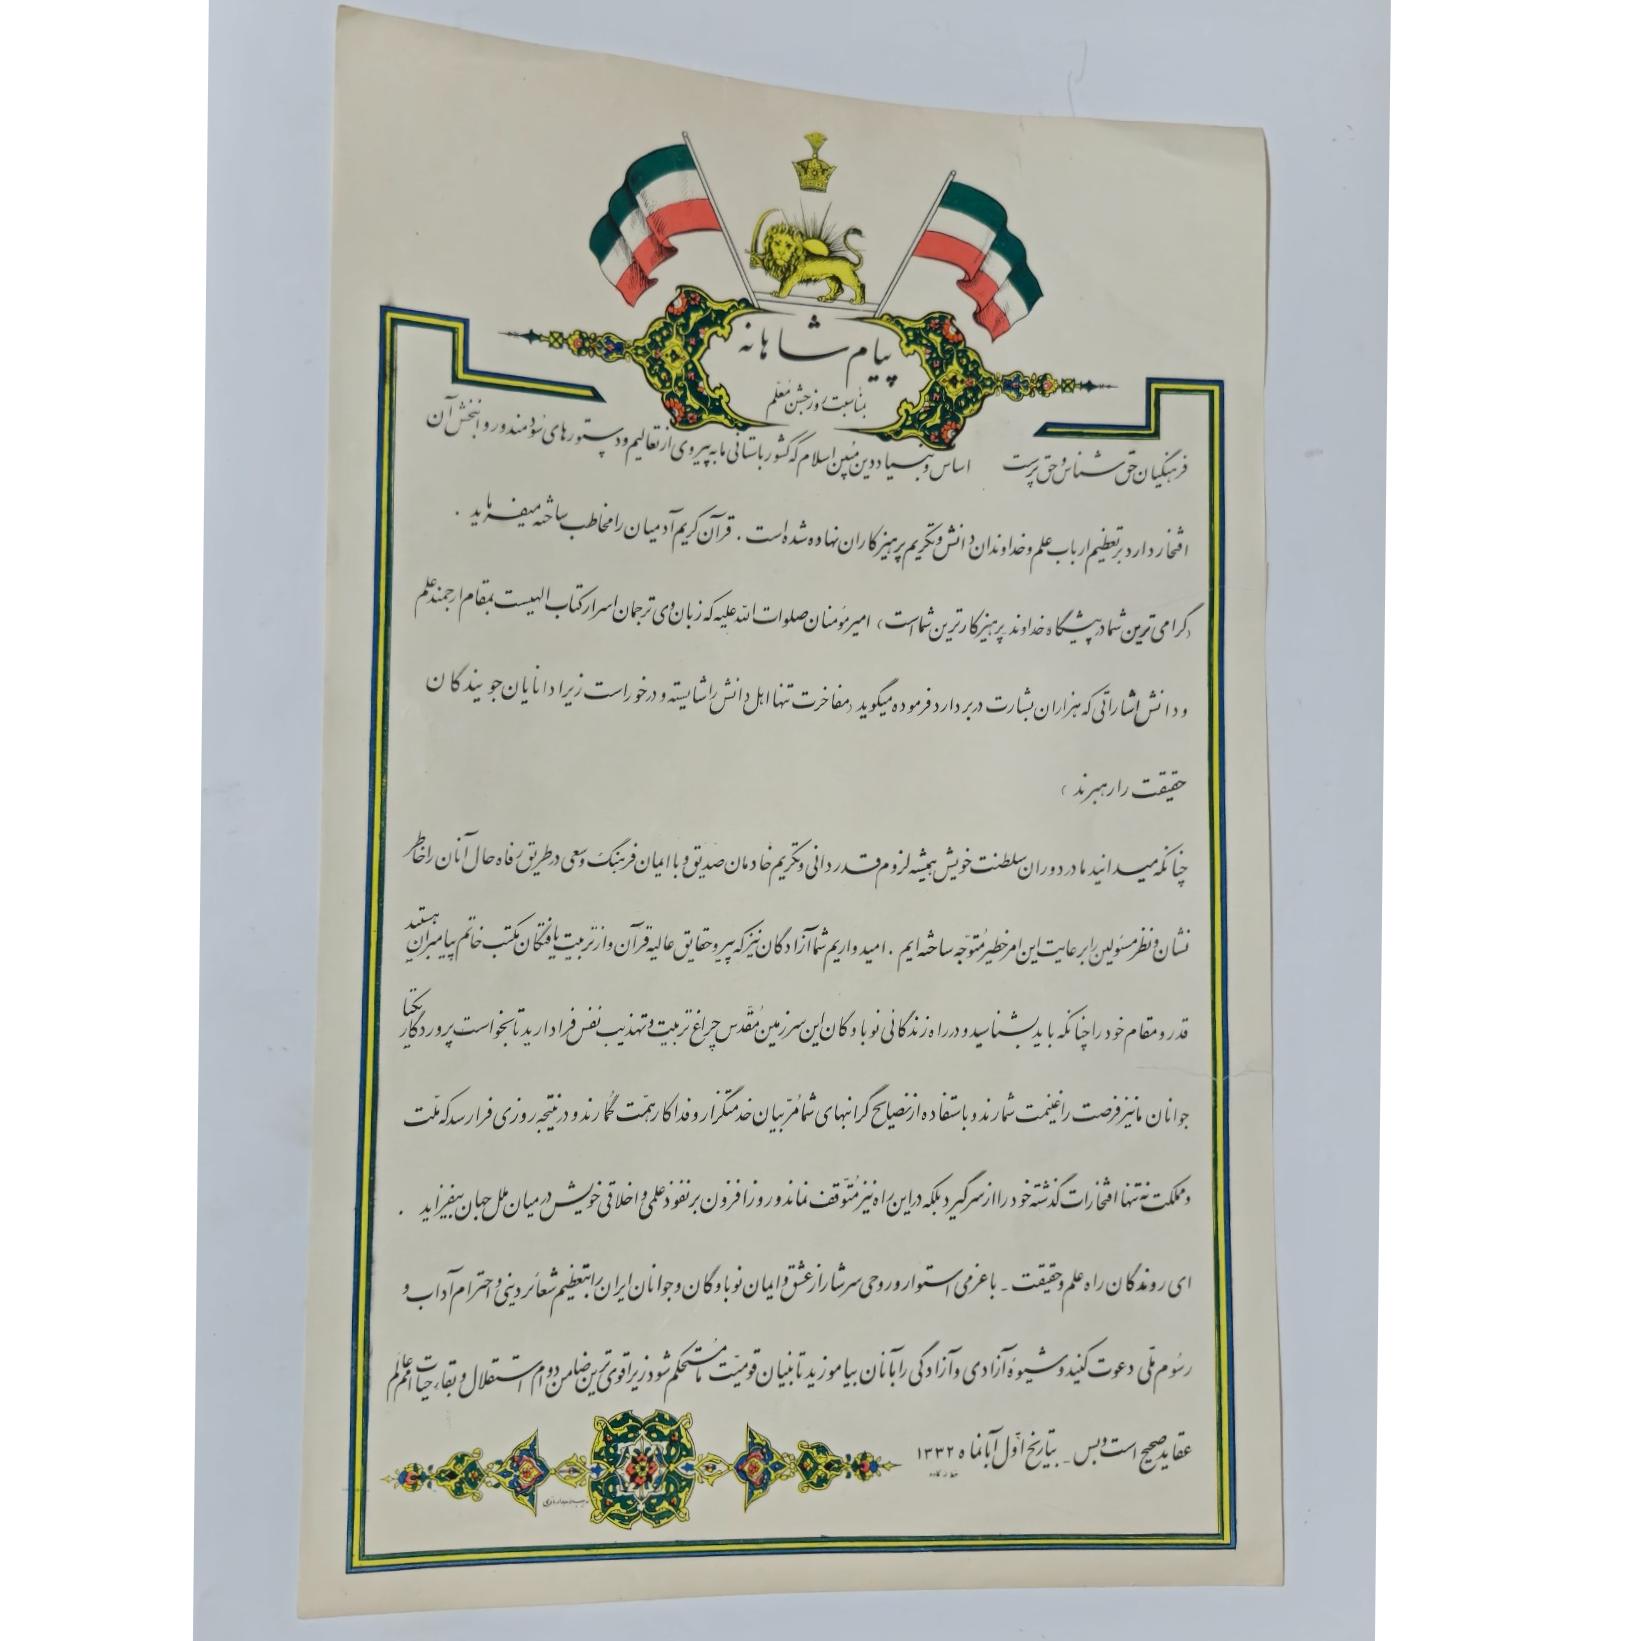 پیام شاهانه
بمناسبت روز جشن معلّم
فرهنگیان حق شناس و حق پرست اساس و بنیاد دین مُبین اسلام که کشور باستانی ما به پیروی از تعالیم و دستورهای سُودمند و روانبخش آن
افتخار دارد بر تعظیم ارباب علم و خداوندان دانش و تکریم پرهیزکاران نهاده شده است . قرآن کریم آدمیان را مخاطب ساخته میفرماید .
(گرامی ترین شما در پیشگاه خداوند پرهیزکارترین شما است) امیر مؤمنان صلوات الله علیه که زبان وی ترجمان اسرار کتاب الهیست بمقام ارجمند علم
و دانش اشاراتی که هزاران بشارت در بر دارد فرموده میگوید (مفاخرت تنها اهل دانش را شایسته و در خور است زیرا دانایان جویندگان
حقیقت را رهبرند )
چنانکه میدانید ما در دوران سلطنت خویش همیشه لزوم قدردانی و تکریم خادمان صدّیق و با ایمان فرهنگ و سعی در طریق رفاه حال آنان را خاطر
نشان و نظر مسئولین را برعایت این امر خطیر مُتوّجه ساخته ایم . امیدواریم شما آزادگان نیز که پیرو حقایق عالیه قرآن و از تربیت یافتگان مکتب خاتم پیامبران هستید
قدر و مقام خود را چنانکه باید بشناسید و در راه زندگانی نوباوگان این سرزمین مُقدّس چراغ تربیت و تهذیب نفس فرا دارید تا بخواست پروردگار یکتا
جوانان ما نیز فرصت را غنیمت شمارند و با استفاده از نصایح گرانبهای شما مُربّیان خدمتگزار و فداکار همّت گمارند و در نتیجه روزی فرا رسد که ملّت
و مملکت نه تنها افتخارات گذشته خود را از سر گیرد بلکه در این راه نیز مُتوّقف نماند و روز افزون بر نفوذ علمی و اخلاقی خویش در میان ملل جهان بیفزاید .
ای روندگان راه علم و حقیقت ـ با عزمی استوار و روحی سرشار از عشق و ایمان نوباوگان و جوانان ایران را بتعظیم شعائر دینی و احترام آداب و
رسُوم ملّی دعوت کنید و شیوهٔ آزادی و آزادگی را بآنان بیاموزید تا بنیان قومیّت ما مُستحکم شود زیرا قوی ترین ضامن دوام استقلال و بقاء حیات اُمم عالم
عقاید صحیح است و بس ـ بتاریخ اوّل آبانماه ۱۳۳۲